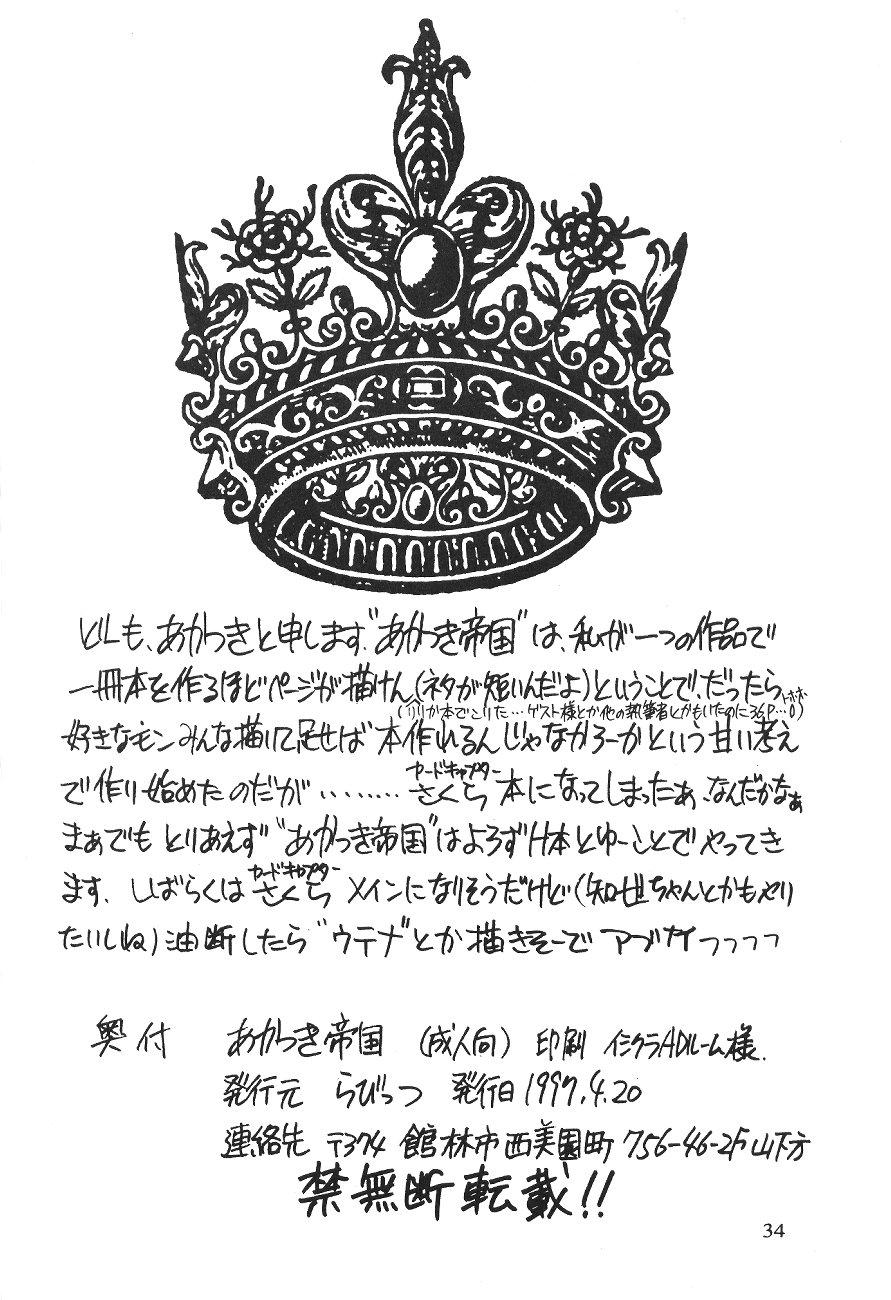 どーも、あかつきと申します。"あかつき帝国"は、私が一つの作品で
一冊本を作るほどページが描けん(ネタが短いんだよ)ということで、だったら
(りりか本でこりた…ゲスト様とか他の執筆者とかもいたのに36P…0)
トホホ
好きなモンみんな描いて足せば本作れるんじゃなかろーかという甘い考え
で作り始めたのだが………さくら本になってしまったぁ、なんだかなぁ
カードキャプター
まぁでも とりあえず"あかつき帝国"はよろずH本とゆーことでやってき
ます。しばらくはさくらメインになりそうだけど(知世ちゃんとかもやり
カードキャプター
たいしね)油断したら"ウテナ"とか描きそーで アブナイっっっっ
奥付 あかつき帝国 (成人向) 印刷 イシクラADルーム様.
発行元 らびっつ 発行日 1997.4.20
連絡先 〒374 館林市西美園町 756-46-2F 山下方
禁無断転載!!
34